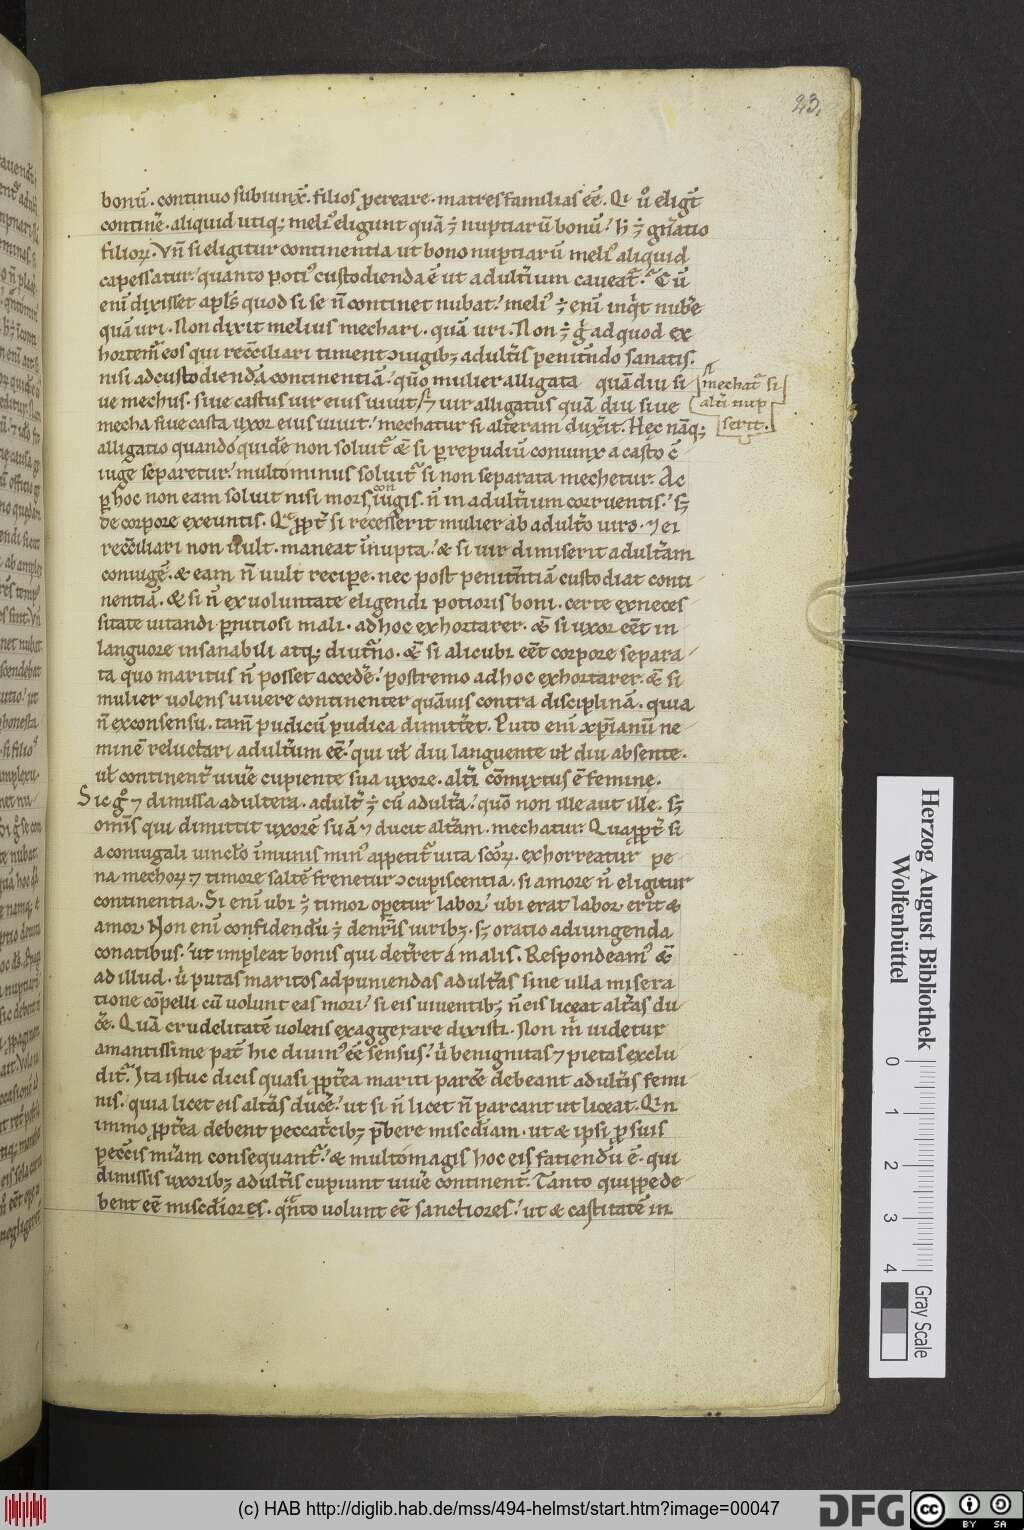 23.
bonū. continuo subiunx̄. filios ꝓcreare. matresfamilias eē. Qi ů eligt̄
continē. aliquid utiq; meli᾿ eligunt quā ÷ nuptiarū bonū. h̄ ÷ gn̄atio
filioꝝ. Vn̄ si eligitur continentia ut bono nuptiarū meli᾿ aliquid
capessatur. quanto poti᾿ custodienda ē ut adultīum caueat̄. Cū
eni dixisset apls̄ quod si se n̄ continet nubat. meli᾿ ÷ enī inq̇t nub̄e
quā uri. Non dixit melius mechari. quā uri. Non ÷ ġ ad quod ex
hortem̄ eos qui recc̄iliari timent ɔiugibꝫ adultīs penitn̄do sanatis.
nisi ad custodiendā continentiā. quō mulier alligata quā diu si
mechat̄ si
ue mechus. siue castus uir eius uiuit sꝫ ⁊ uir alligatus quā diu siue
alt̄i nup
mecha siue casta uxor eius uiuit. mechatur si alt̄eram dux̄it. Hęc nāq;
serit.
alligatio quando quidē non soluit̄ &̄ si ꝑ repudiū coniunx a casto c̄
iuge separetur. multominus soluit̄ si non separata mechetur. Ac
ꝑ hoc non eam soluit nisi mors coniugis. n̄ in adultīum corruentis. sꝫ
de corpore exeuntis. Qa ꝓpt̄ si recesserit mulier ab adult̄o uiro. ⁊ ei
recc̄iliari non uult. maneat īnupta. & si uir dimiserit adult̄am
coniugē. & eam n̄ uult recipe. nec post penitn̄tiā custodiat conti
nentiā. & si n̄ ex uoluntate eligendi potioris boni. certe ex neces
sitate uitandi ꝑnitiosi mali. ad hoc exhortarer. &̄ si uxor eēt in
languore insanabili atq; diutn̄o. &̄ si alicubi eēt corpore separa
ta quo maritus n̄ posset accedē. postremo ad hoc exhortarer. &̄ si
mulier uolens uiuere continenter quāuis contra disciplinā. quia
n̄ ex consensu. tam̄ pudicū pudica dimitt̄et. Puto enī xp̄ianū ne
minē reluctari adultīum eē. qui uł diu languente uł diu absente.
uł continent̄ uiuē cupiente sua uxore. alt̄i cōmixtus ē femine.
Sic ġ ⁊ dimissa adultera. adult̄ ÷ cū adult̄a. quō non ille aut ille. sꝫ
omīs qui dimittit uxorē suā ⁊ ducit alt̄am. mechatur. Quaꝓpt̄ si
a coniugali uincło īmunis min᾿ appetit̄ uita sc̄oꝝ. exhorreatur pe
na mechoꝝ ⁊ timore saltē frenetur ɔcupiscentia. si amore n̄ eligitur
continentia. Si enī ubi ÷ timor opetur labor. ubi erat labor erit &
amor. Non enī confidendū ÷ de nr̄is uiribꝫ. sꝫ oratio adiungenda
conatibus. ut impleat bonis qui det̄ret a malis. Respondeam᾿ &̄
ad illud. ů putas maritos ad puniendas adult̄as sine ulla misera
tione cōpelli cū uolunt eas mori. si eis uiuentibꝫ n̄ eis liceat alt̄as du
cē. Quā crudelitatē uolens exaggerare dixisti. Non m̊ uidetur
amantissime pat̄ hic diuin᾿ eē sensus. ů benignitas ⁊ pietas exclu
dit̄. Ita istuc dicis quasi ꝓpt̄ea mariti parcē debeant adult̄is femi
nis. quia licet eis alt̄as ducē. ut si n̄ licet n̄ parcant ut liceat. Qin
immo ꝓpt̄ea debent peccat̄cibꝫ p̄bere misc̄diam. ut & ipsi ꝓ suis
pecc̄is miāam consequant̄. & multomagis hoc eis fatiendū ē. qui
dimissis uxoribꝫ adult̄is cupiunt uiuē continent̄. Tanto quippe de
bent eē misc̄diores. q̄nto uolunt eē sanctiores. ut & castitatē in
Herzog August Bibliothek
Wolfenbüttel
0 1 2 3 4
Gray Scale
(c) HAB http://diglib.hab.de/mss/494-helmst/start.htm?image=00047
DFG
cc BY SA